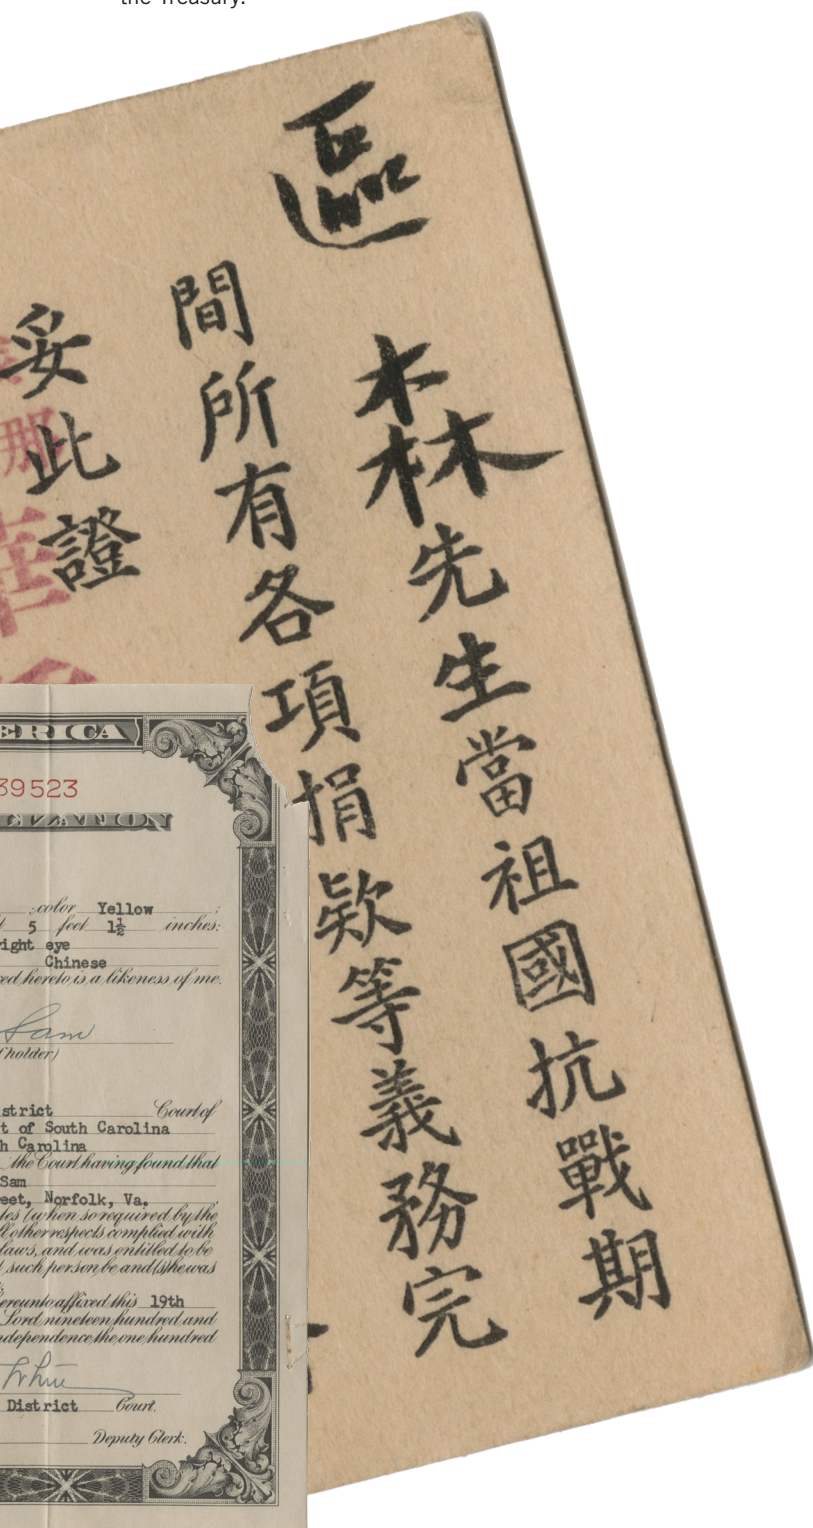 the Treasury.
區森先生當祖國抗戰期
間所有各項捐欵等義務完
妥此證
那
華
ERICA
39523
IZATION
color Yellow ;
5 feet 1½ inches;
right eye
Chinese
ed hereto is a likeness of me.
Sam
holder)
strict Court of
t of South Carolina
h Carolina
the Court having found that
Sam
eet, Norfolk, Va.
tes (when so required by the
ll other respects complied with
laws, and was entitled to be
t such person be and (s)he was
ereunto affixed this 19th
Lord nineteen hundred and
ndependence the one hundred
District Court.
Deputy Clerk.